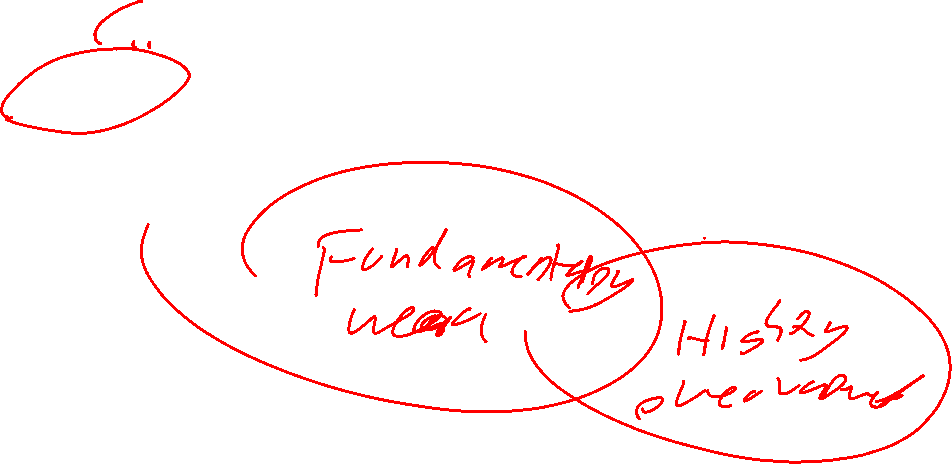 Fundamentally
weak
Highly
overvalued